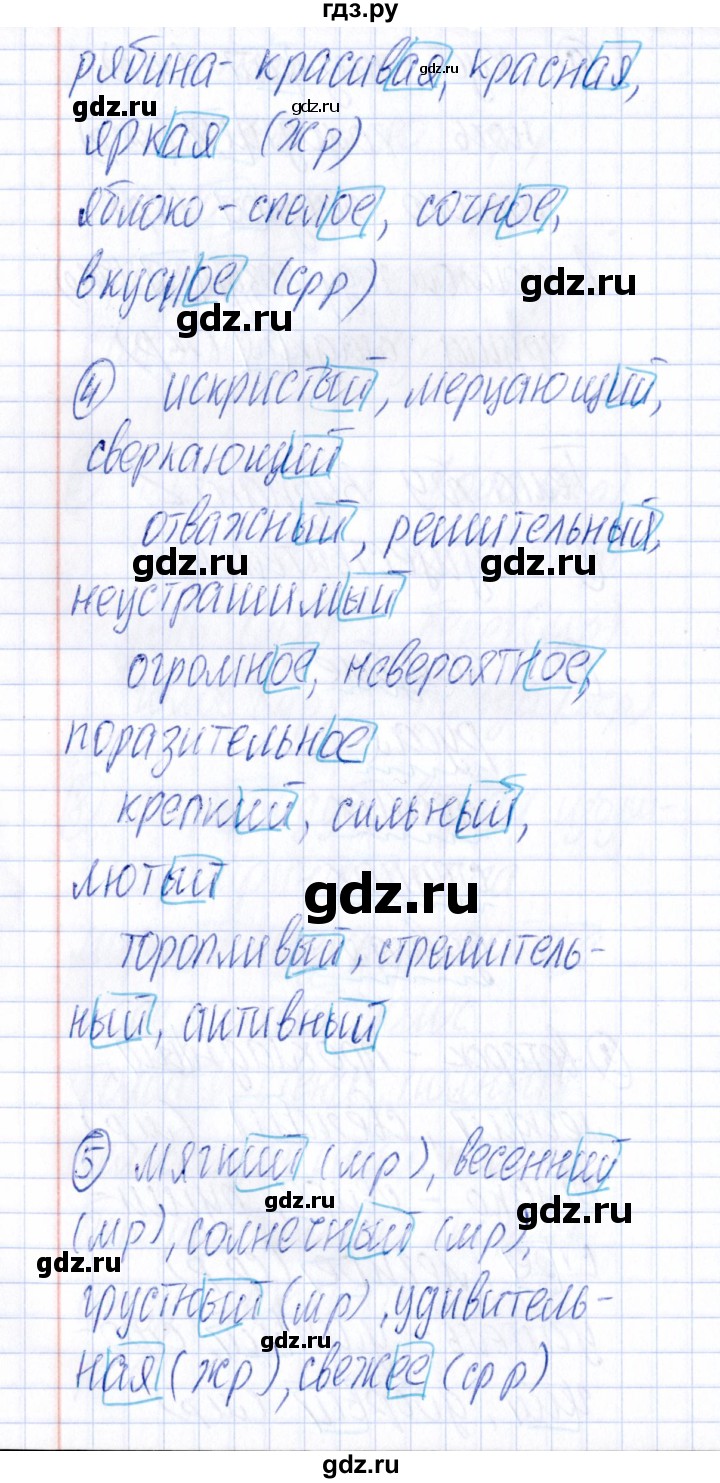 гдз.ру
рябина - красивая, красная,
яркая (жр)
яблоко - спелое, сочное,
вкусное (срр)
④ искристый, мерцающий,
сверкающий
отважный, решительный,
неустрашимый
огромное, невероятное,
поразительное
крепкий, сильный,
лютый
торопливый, стремитель-
ный, активный
⑤ мягкий (мр), весенний
(мр), солнечный (мр),
грустный (мр), удивитель-
ная (жр), свежее (срр)
gdz.ru
gdz.ru
gdz.ru
gdz.ru
gdz.ru
gdz.ru
gdz.ru
gdz.ru
gdz.ru
gdz.ru
gdz.ru
gdz.ru
gdz.ru
gdz.ru